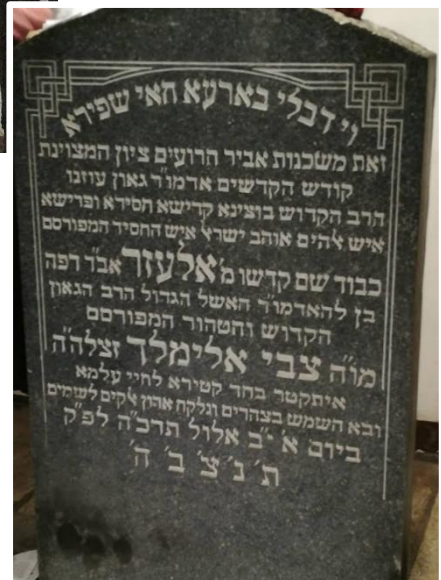 וי דבלי בארעא האי שפירא
זאת משכנות אביר הרועים ציון המצוינת
קודש הקדשים אדמו״ר גאון עוזנו
הרב הקדוש בוצינא קדישא חסידא ופרישא
איש אלהים אוהב ישראל איש החסיד המפורסם
כבוד שם קדשו מ׳ אלעזר אב״ד דפה
בן להאדמו״ר האשל הגדול הרב הגאון
הקדוש והטהור המפורסם
מו״ה צבי אלימלך זצלה״ה
איתקטר בחד קטירא לחיי עלמא
ובא השמש בצהרים ונלקח ארון אלקים לשמים
ביום א׳ י״ב אלול תרכ״ה לפ״ק
ת׳ נ׳ צ׳ ב׳ ה׳